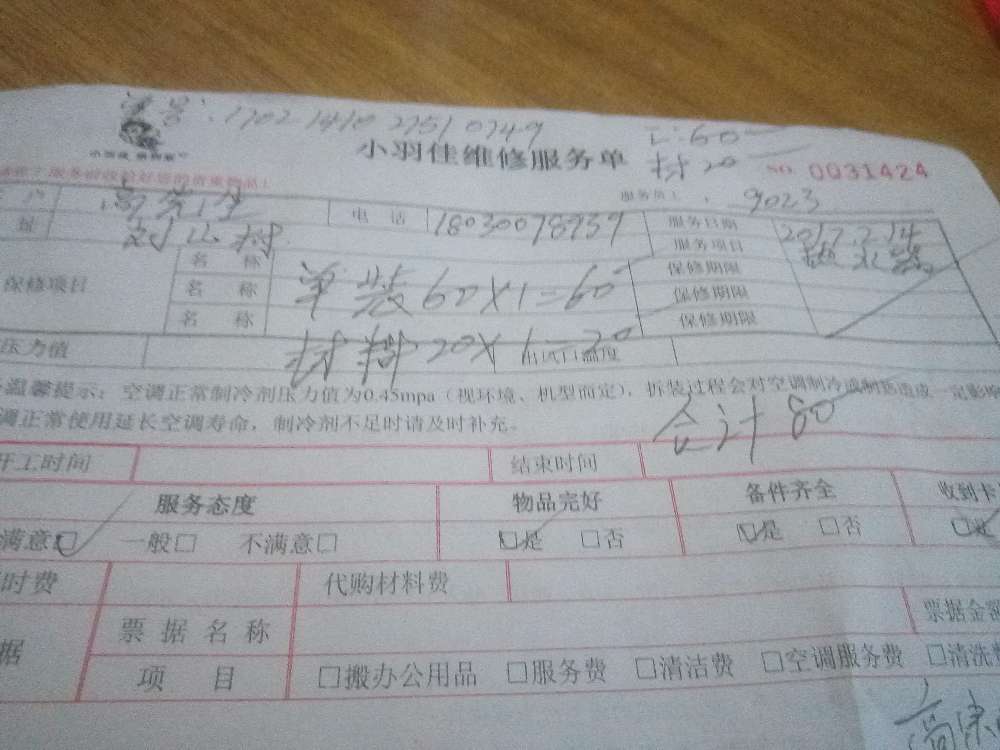 单号：1702141027510749
工:60
小羽佳维修服务单
材20
NO. 0031424
服务员工
9023
户
高先生
电 话
18030078939
服务日期
2017.2.14
址
服务项目
热水器
保修项目
名 称
单装60X1=60
保修期限
名 称
保修期限
名 称
材料20X1=20
保修期限
压力值
出风口温度
温馨提示：空调正常制冷剂压力值为0.45mpa（视环境、机型而定），拆装过程会对空调制冷或制热造成一定影响
调正常使用延长空调寿命，制冷剂不足时请及时补充。
合计 80
开工时间
结束时间
服务态度
物品完好
备件齐全
收到卡
满意□ 一般□ 不满意□
□是 □否
□是 □否
□是
时费
代购材料费
据
票据名称
票据金额
项 目
□搬办公用品 □服务费 □清洁费 □空调服务费 □清洗费